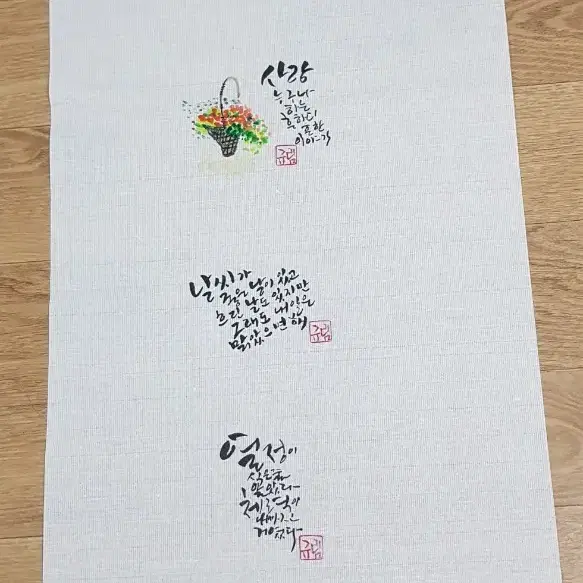 사랑
누구나
하는
흔하디
흔한
이야기
날씨가
좋은 날이 있고
흐린 날도 있지만
그래도 내일은
맑았으면 해
열정이
식은줄
알았다
체력이
나빠진
거였다